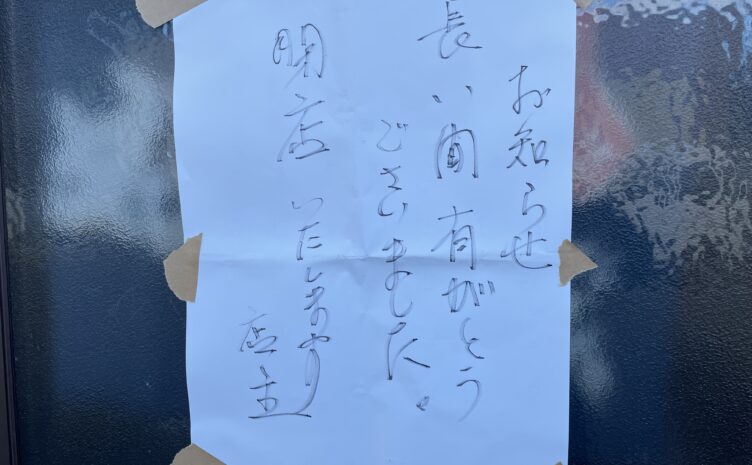 お知らせ
長い間有がとう
ございました。
閉店いたします
店主